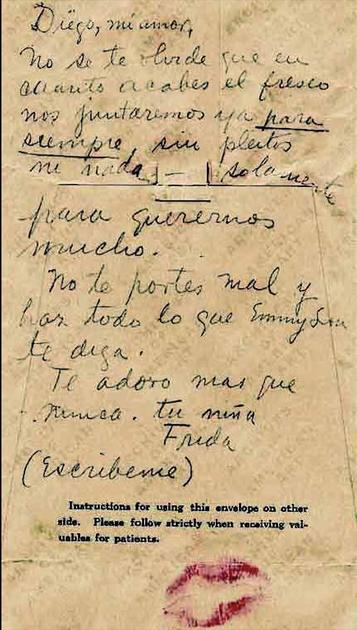 Diego, mi amor,
No se te olvide que en
cuanto acabes el fresco
nos juntaremos ya para
siempre, sin pleitos
ni nada — solamente
para querernos
mucho.
No te portes mal y
haz todo lo que Emmy Lou
te diga.
Te adoro mas que
nunca. tu niña
Frida
(Escribeme)
Instructions for using this envelope on other
side. Please follow strictly when receiving val-
uables for patients.